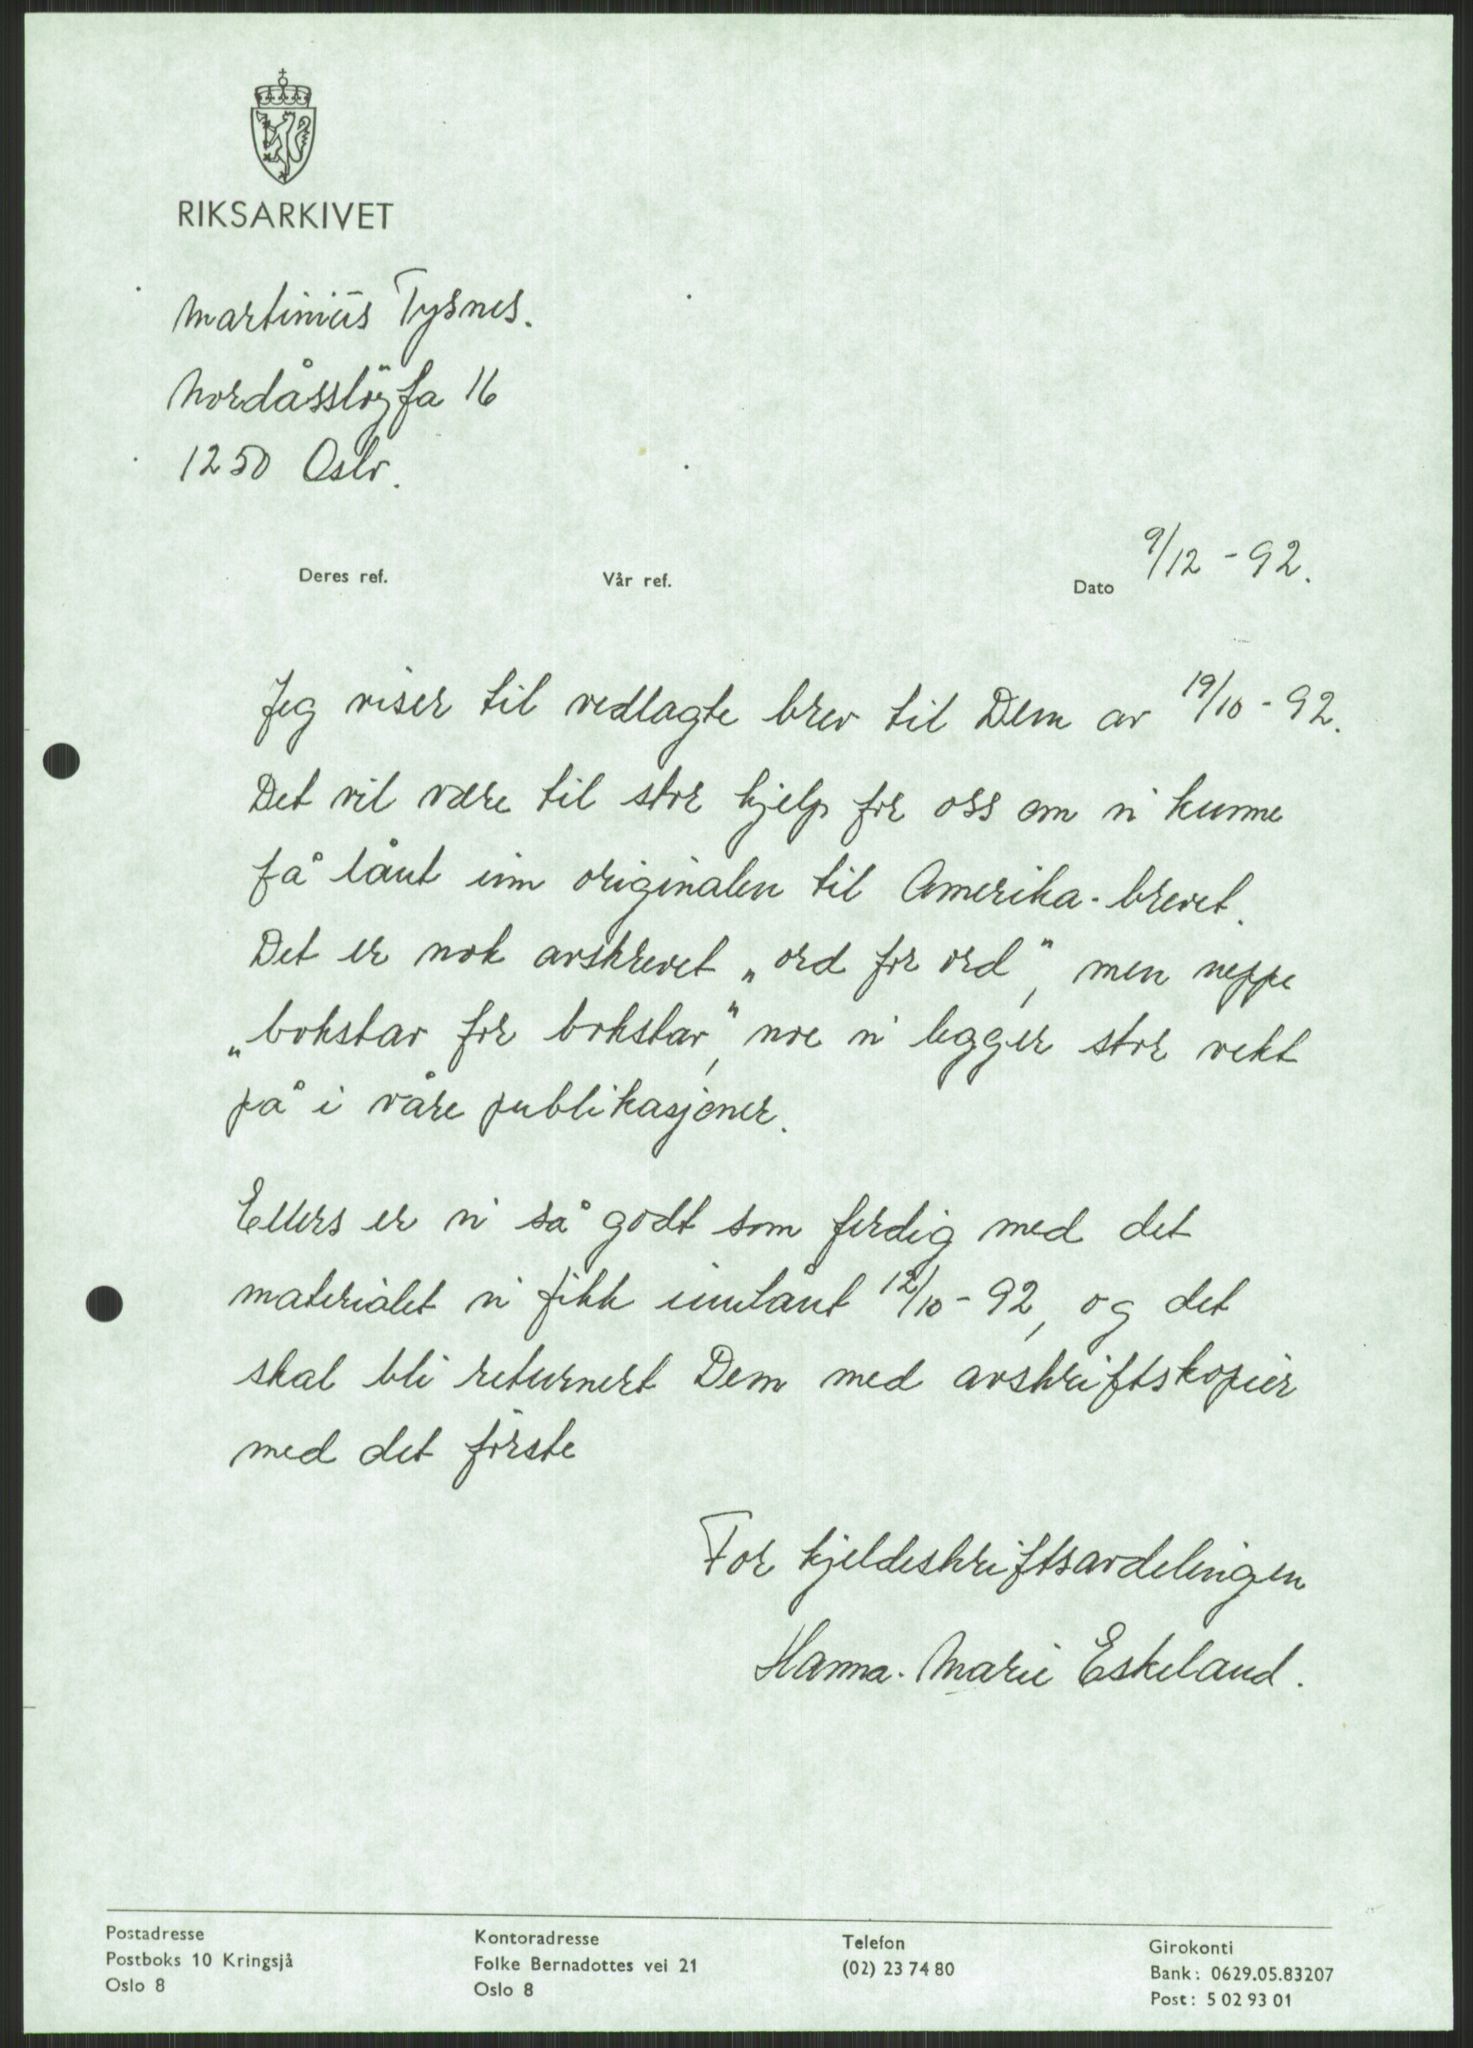 RIKSARKIVET
Martinius Tysnes.
Nordåssløyfa 16
1250 Oslo.
Deres ref. Vår ref. Dato 9/12 - 92.
Jeg viser til vedlagte brev til Dem av 19/10 - 92.
Det vil være til stor hjelp for oss om vi kunne
få lånt inn originalen til Amerika-brevet.
Det er nok avskrevet „ord for ord”, men neppe
„bokstav for bokstav”, noe vi legger stor vekt
på i våre publikasjoner.
Ellers er vi så godt som ferdig med det
materialet vi fikk innlånt 12/10 - 92, og det
skal bli returnert Dem med avskriftskopier
med det første
For kjeldeskriftsavdelingen
Hanna-Marie Eskeland.
Postadresse
Postboks 10 Kringsjå
Oslo 8
Kontoradresse
Folke Bernadottes vei 21
Oslo 8
Telefon
(02) 23 74 80
Girokonti
Bank: 0629.05.83207
Post: 5 02 93 01